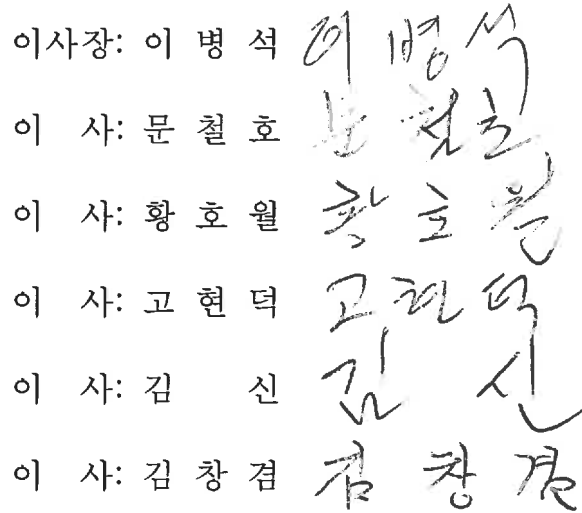 이사장: 이 병 석 이 병 석
이 사: 문 철 호 문 철 호
이 사: 황 호 월 황 호 월
이 사: 고 현 덕 고 현 덕
이 사: 김 신 김 신
이 사: 김 창 겸 김 창 겸